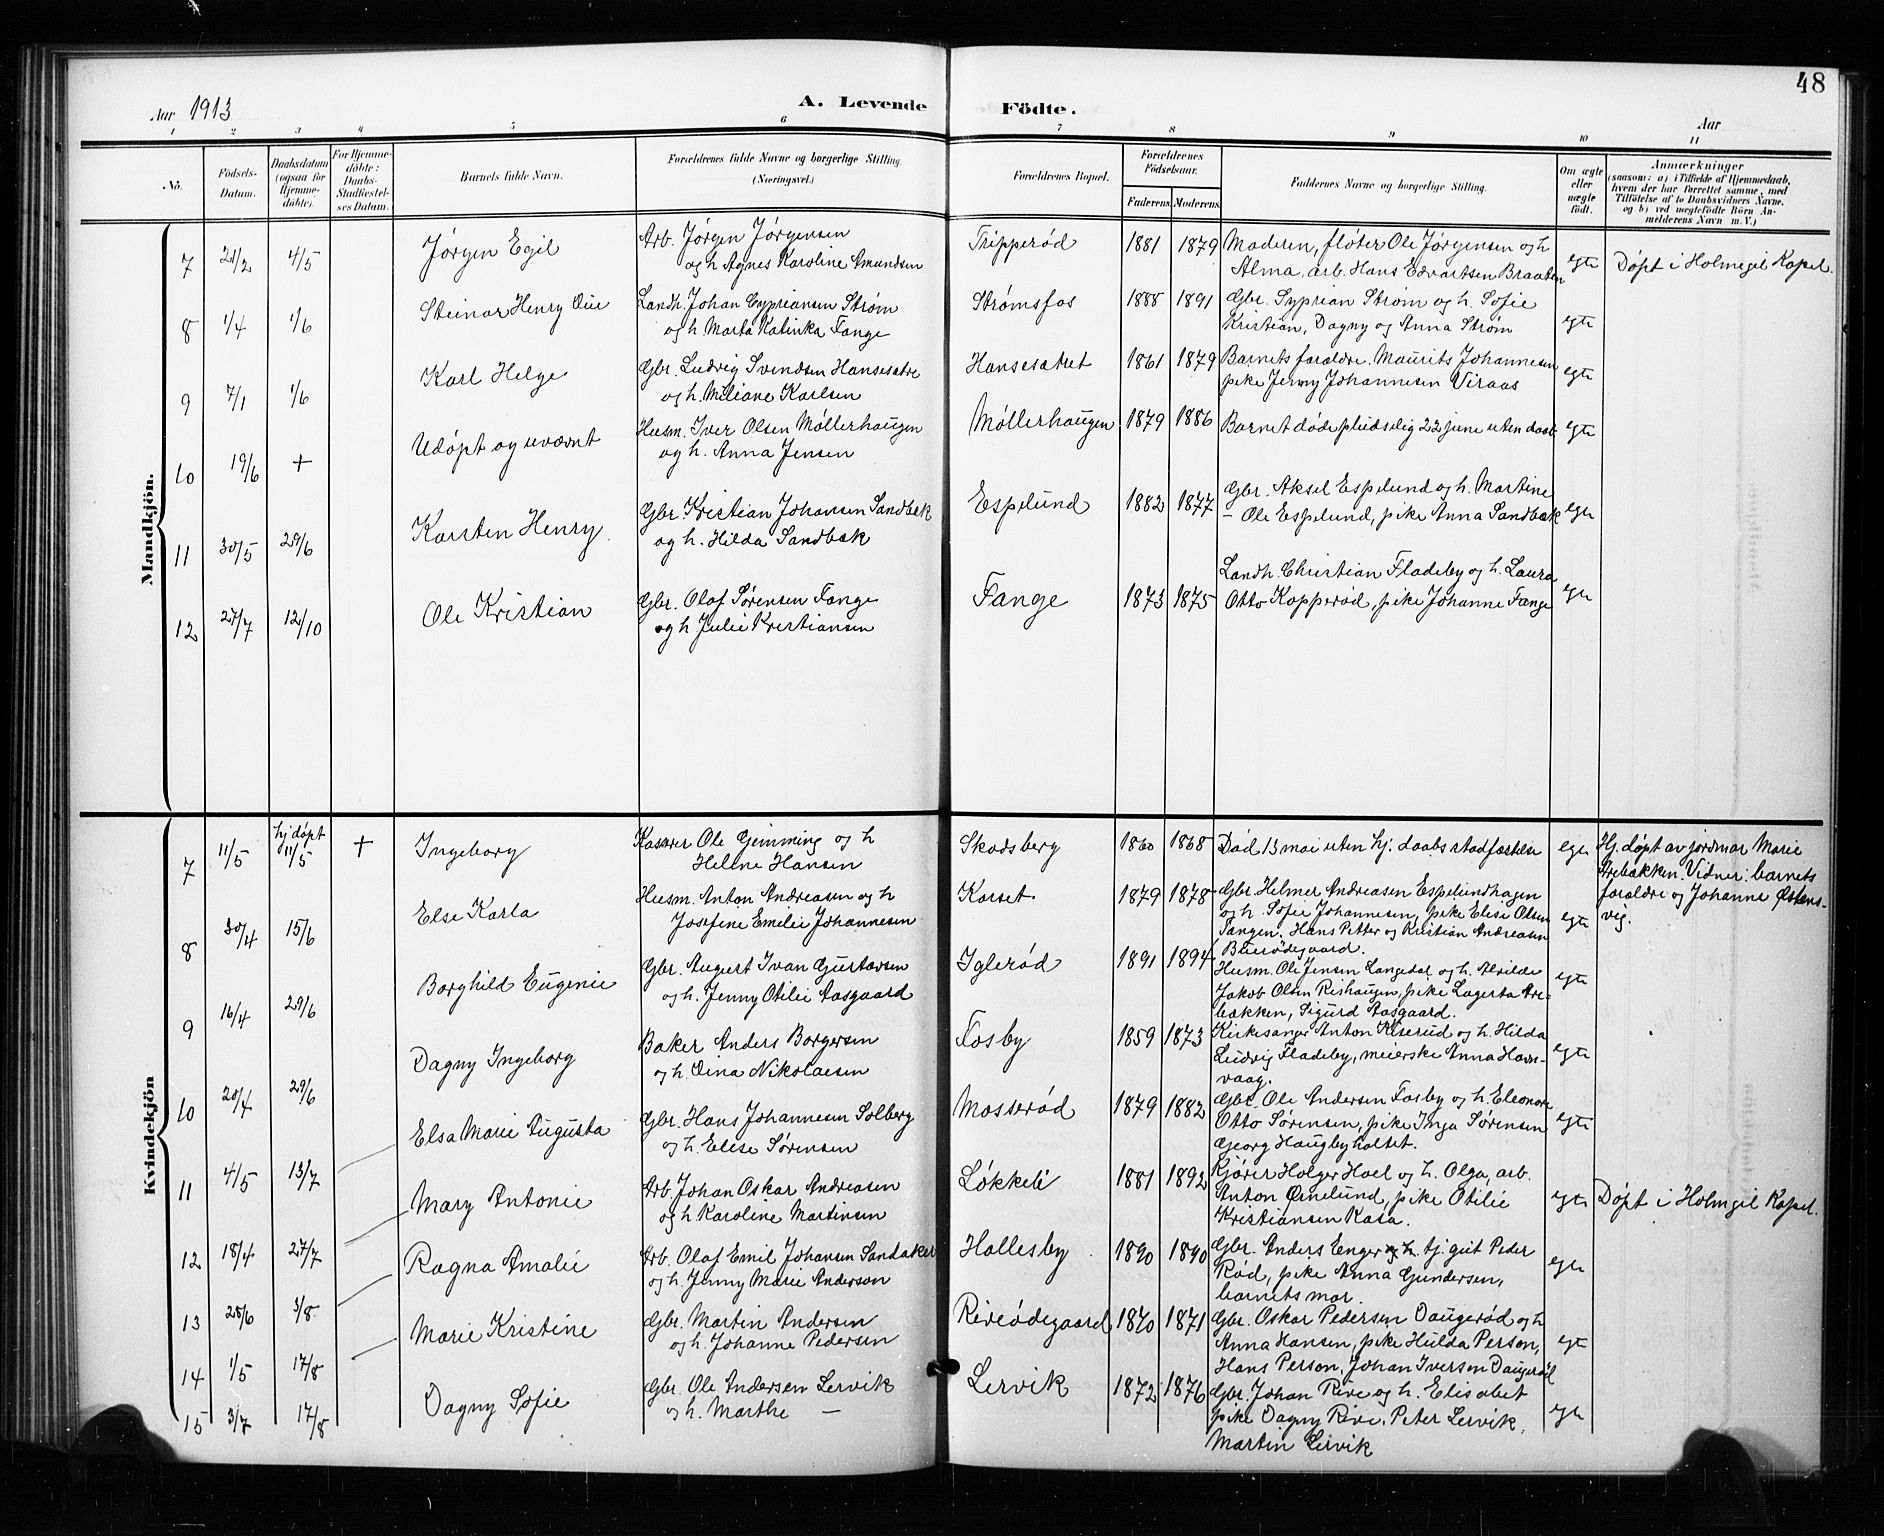 48
Aar 1913
A. Levende Födte.
Aar
1 2 3 4 5 6 7 8 9 10 11
No.
Födsels-
Datum.
Daabsdatum
(ogsaa for
Hjemme-
döbte).
For Hjemme-
döbte:
Daabs-
Stadfæstel-
ses Datum.
Barnets fulde Navn.
Forældrenes fulde Navne og borgerlige Stilling.
(Næringsvei.)
Forældrenes Bopæl.
Forældrenes
Födselsaar.
Faderens Moderens.
Faddernes Navne og borgerlige Stilling.
Om ægte
eller
uægte
födt.
Anmærkninger
(saasom: a) i Tilfælde af Hjemmedaab,
hvem der har forrettet samme, med
Tilföielse af to Daabsvidners Navne.
og b) ved uægtefödte Börn An-
melderens Navn m. V.)
Mandkjön.
7 21/2 4/5 Jørgen Egil Arb. Jørgen Jørgensen
og h Agnes Karoline Amundsen
Tripperød 1881 1879 Moderen, fløter Ole Jørgensen og h
Alma, arb. Hans Edvartsen Braaten
egte Døpt i Holmegil Kapel.
8 1/4 1/6 Steinar Henry Due Landh. Johan Cyprianssen Strøm
og h Marta Katinka Fange
Strømsfos 1888 1891 Gbr. Syprian Strøm og h. Sofie
Kristian, Dagny og Anna Strøm
egte
9 7/1 1/6 Karl Helge Gbr. Ludvig Svendsen Hansesætre
og h. Miliane Karlsen
Hansesætret 1861 1879 Barnets forældre. Maurits Johannesen
pike Jenny Johannesen Viraas
egte
10 19/6 + Udøpt og uvævnt Husm. Iver Olsen Møllerhaugen
og h. Anna Jensen
Møllerhaugen 1879 1886 Barnet døde pludselig 22 june uten daab
egte
11 30/5 29/6 Karsten Henry. Gbr. Kristian Johansen Sandbæk
og h. Hilda Sandbæk
Espelund 1882 1877 Gbr. Aksel Espelund og h. Martine
— Ole Espelund, pike Anna Sandbæk
egte
12 27/7 12/10 Ole Kristian Gbr. Olaf Sørensen Fange
og h Julie Kristiansen
Fange 1873 1875 Landh. Christian Fladeby og h. Laura
Otto Kopperød, pike Johanne Fange
egte
Kvindekjön
7 11/5 hj døpt
11/5 + Ingeborg Kasserer Ole Gjemming og h
Helene Hansen
Skodsberg 1860 1868 Død 13 mai uten hj. daabs stadfæstelse
egte Hj. døpt av jordmor Marie
Arebækken. Vidner: barnets
forældre og Johanne Østens-
vig.
8 30/4 15/6 Else Karla Husm. Anton Andreasen og h
Josefine Emilie Johannesen
Korset 1879 1878 Gbr. Helmer Andreasen Espelundhagen
og h. Sofie Johannesen, pike Elise Olsen
Tangen. Hans Petter og Kristian Andreasen
Buerødegaard.
egte
9 16/4 29/6 Borghild Eugenie Gbr. August Ivan Gustavsen
og h. Jenny Otilie Aasgaard
Iglerød 1891 1894 Husm. Ole Jensen Langedal og h. Alvilde
Jakob Olsen Rishaugen, pike Lagerta Are-
bækken, Sigurd Aasgaard.
egte
10 20/4 29/6 Dagny Ingeborg Baker Anders Borgersen
og h. Dina Nikolaisen
Fosby 1859 1873 Kirkesanger Anton Kiserud og h. Hilda
Ludvig Fladeby, meierske Anna Havs-
vaag.
egte
11 4/5 13/7 Elsa Marie Augusta Gbr. Hans Johannesen Solberg
og h. Elise Sørensen
Mosserød 1879 1882 Gbr. Ole Andersen Fosby og h. Eleonore
Otto Sørensen, pike Inga Sørensen
Georg Haugbyholtet.
egte
12 18/4 27/7 Mary Antonie Arb. Johan Oskar Andreasen
og h. Karoline Martinsen
Løkkeli 1881 1892 Kjører Holger Hoel og h. Olga, arb.
Anton Ørnelund, pike Otilie
Kristiansen Kasa.
egte Døpt i Holmgil Kapel.
13 25/6 3/8 Ragna Amalie Arb. Olaf Emil Johansen Sandaker
og h. Jenny Marie Anderson
Hallesby 1890 1890 Gbr. Anders Enger og h. tj. gut Peder
Rød, pike Anna Gundersen,
barnets mor.
egte
14 1/5 17/8 Marie Kristine Gbr. Martin Andersen
og h. Johanne Pedersen
Riverødegaard 1870 1871 Gbr. Oskar Pedersen Daugerød og h
Anna Hansen, pike Hulda Person,
Hans Person, Johan Iversen Daugerød
egte
15 3/7 17/8 Dagny Sofie Gbr. Ole Andersen Lervik
og h. Marthe —
Lervik 1872 1876 Gbr. Johan Rive og h. Elisabet
pike Dagny Rive. Peter Lervik.
Martin Lervik
egte